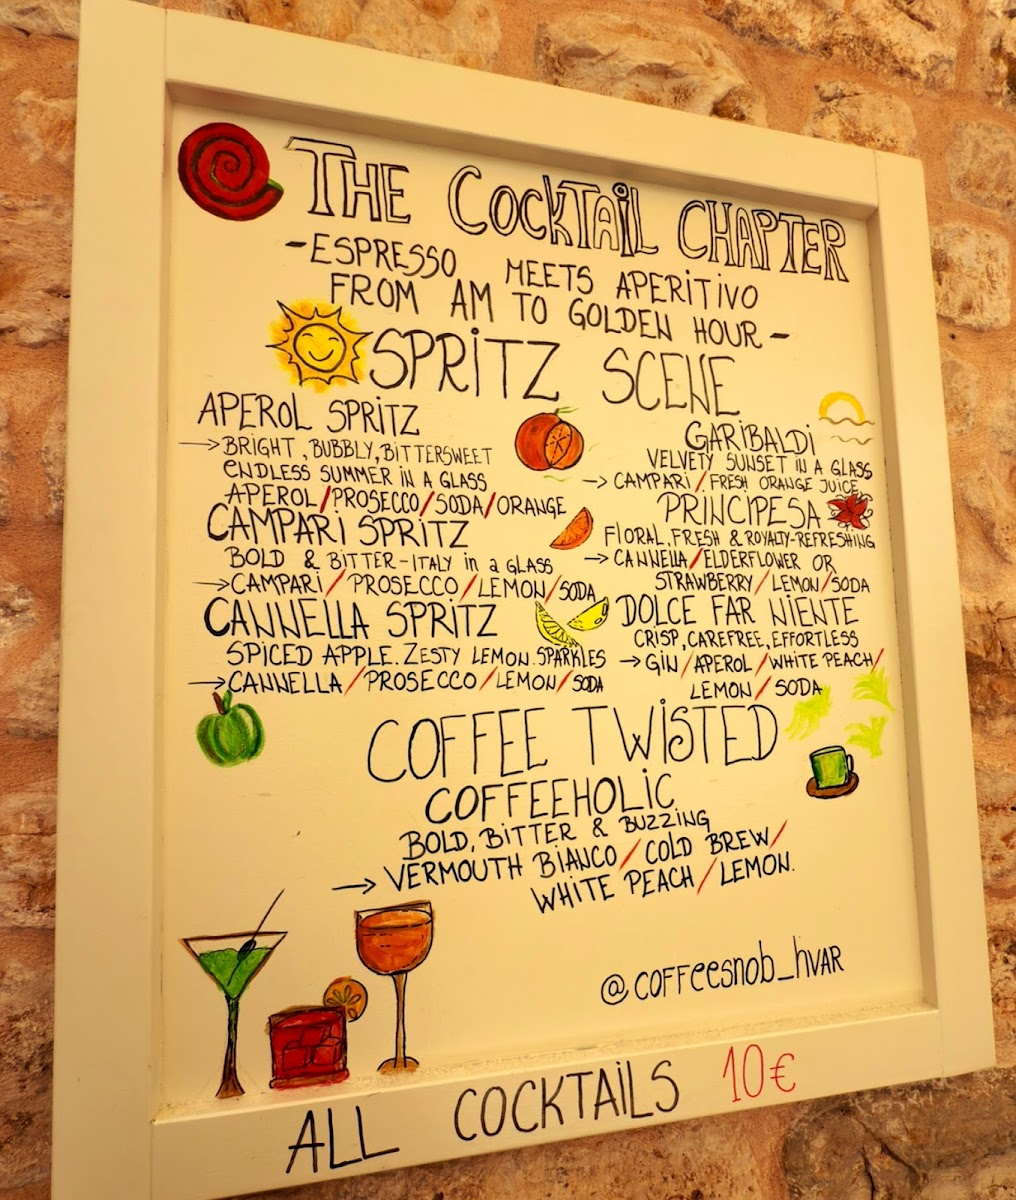 THE COCKTAiL CHAPTER
-ESPRESSO MEETS APERiTiVO
FROM AM TO GOLDEN HOUR-
SPRiTZ SCENE
APEROL SPRiTZ
→BRiGHT, BUBBLY, BiTTERSWEET
ENDLESS SUMMER iN A GLASS
APEROL/PROSECCO/SODA/ORANGE
CAMPARi SPRiTZ
BOLD & BiTTER-iTALY in a GLASS
→CAMPARi/PROSECCO/LEMON/SODA
CANNELLA SPRiTZ
SPiCED APPLE. ZESTY LEMON. SPARKLES
→CANNELLA/PROSECCO/LEMON/SODA
GARiBALDi
VELVETY SUNSET iN A GLASS
→ CAMPARi/FRESH ORANGE JUiCE
PRiNCiPESA
FLORAL, FRESH & ROYALTY-REFRESHiNG
→CANNELLA/ELDERFLOWER OR
STRAWBERRY/LEMON/SODA
DOLCE FAR NiENTE
CRiSP, CAREFREE, EFFORTLESS
→GiN/APEROL/WHiTE PEACH/
LEMON/SODA
COFFEE TWiSTED
COFFEEHOLiC
BOLD, BiTTER & BUZZiNG
→VERMOUTH BiANCO/COLD BREW/
WHiTE PEACH/LEMON.
@coffeesnob_hvAR
ALL COCKTAiLS 10€